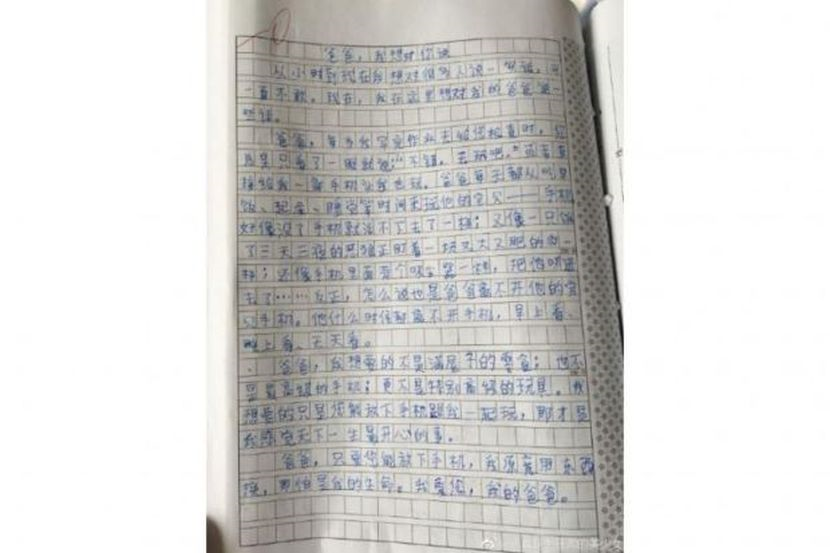 爸爸，我想对你说
从小时到现在我想对很多人说一些话，可
一直不敢。现在，我在这里想对我的爸爸说一
些话。
爸爸，每手我写完作业去给您检查时，您
总是只看了一眼就说“不错，去玩吧。”还直
接给我一部手机让我去玩。爸爸每天都从吃
饭、起床、睡觉等时间来玩他的宝贝——手机
好像没了手机就活不下去了一样；又像一只饿
了三天三夜的恶狼正盯着一块又大又肥的肉一
样；还像手机里面有个吸 器一样，把他吸进
去了……反正，怎么说也是爸爸离不开他的宝
贝手机。他什么时候都离不开手机，早上看、
晚上看、天天看。
爸爸，我想要的不是满屋子的零食；也不
是最高级的手机；更不是特别高级的玩具。我
想要的只是您能放下手机跟我一起玩，那才是
我感觉天下一生最开心的事。
爸爸，只要您能放下手机，我愿意用东西
换，那怕是我的生命。我爱您，我的爸爸。